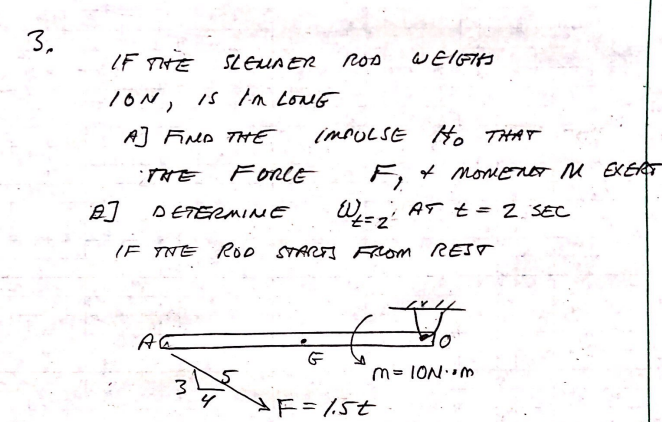 3.
IF THE SLENDER ROD WEIGHS
10N, IS 1m LONG
A] FIND THE IMPULSE H₀ THAT
THE FORCE F, & MOMENT M EXERT
B] DETERMINE ω_{t=2} AT t = 2 SEC
IF THE ROD STARTS FROM REST
A G O
m = 10N·m
3 4 5
F = 1.5t